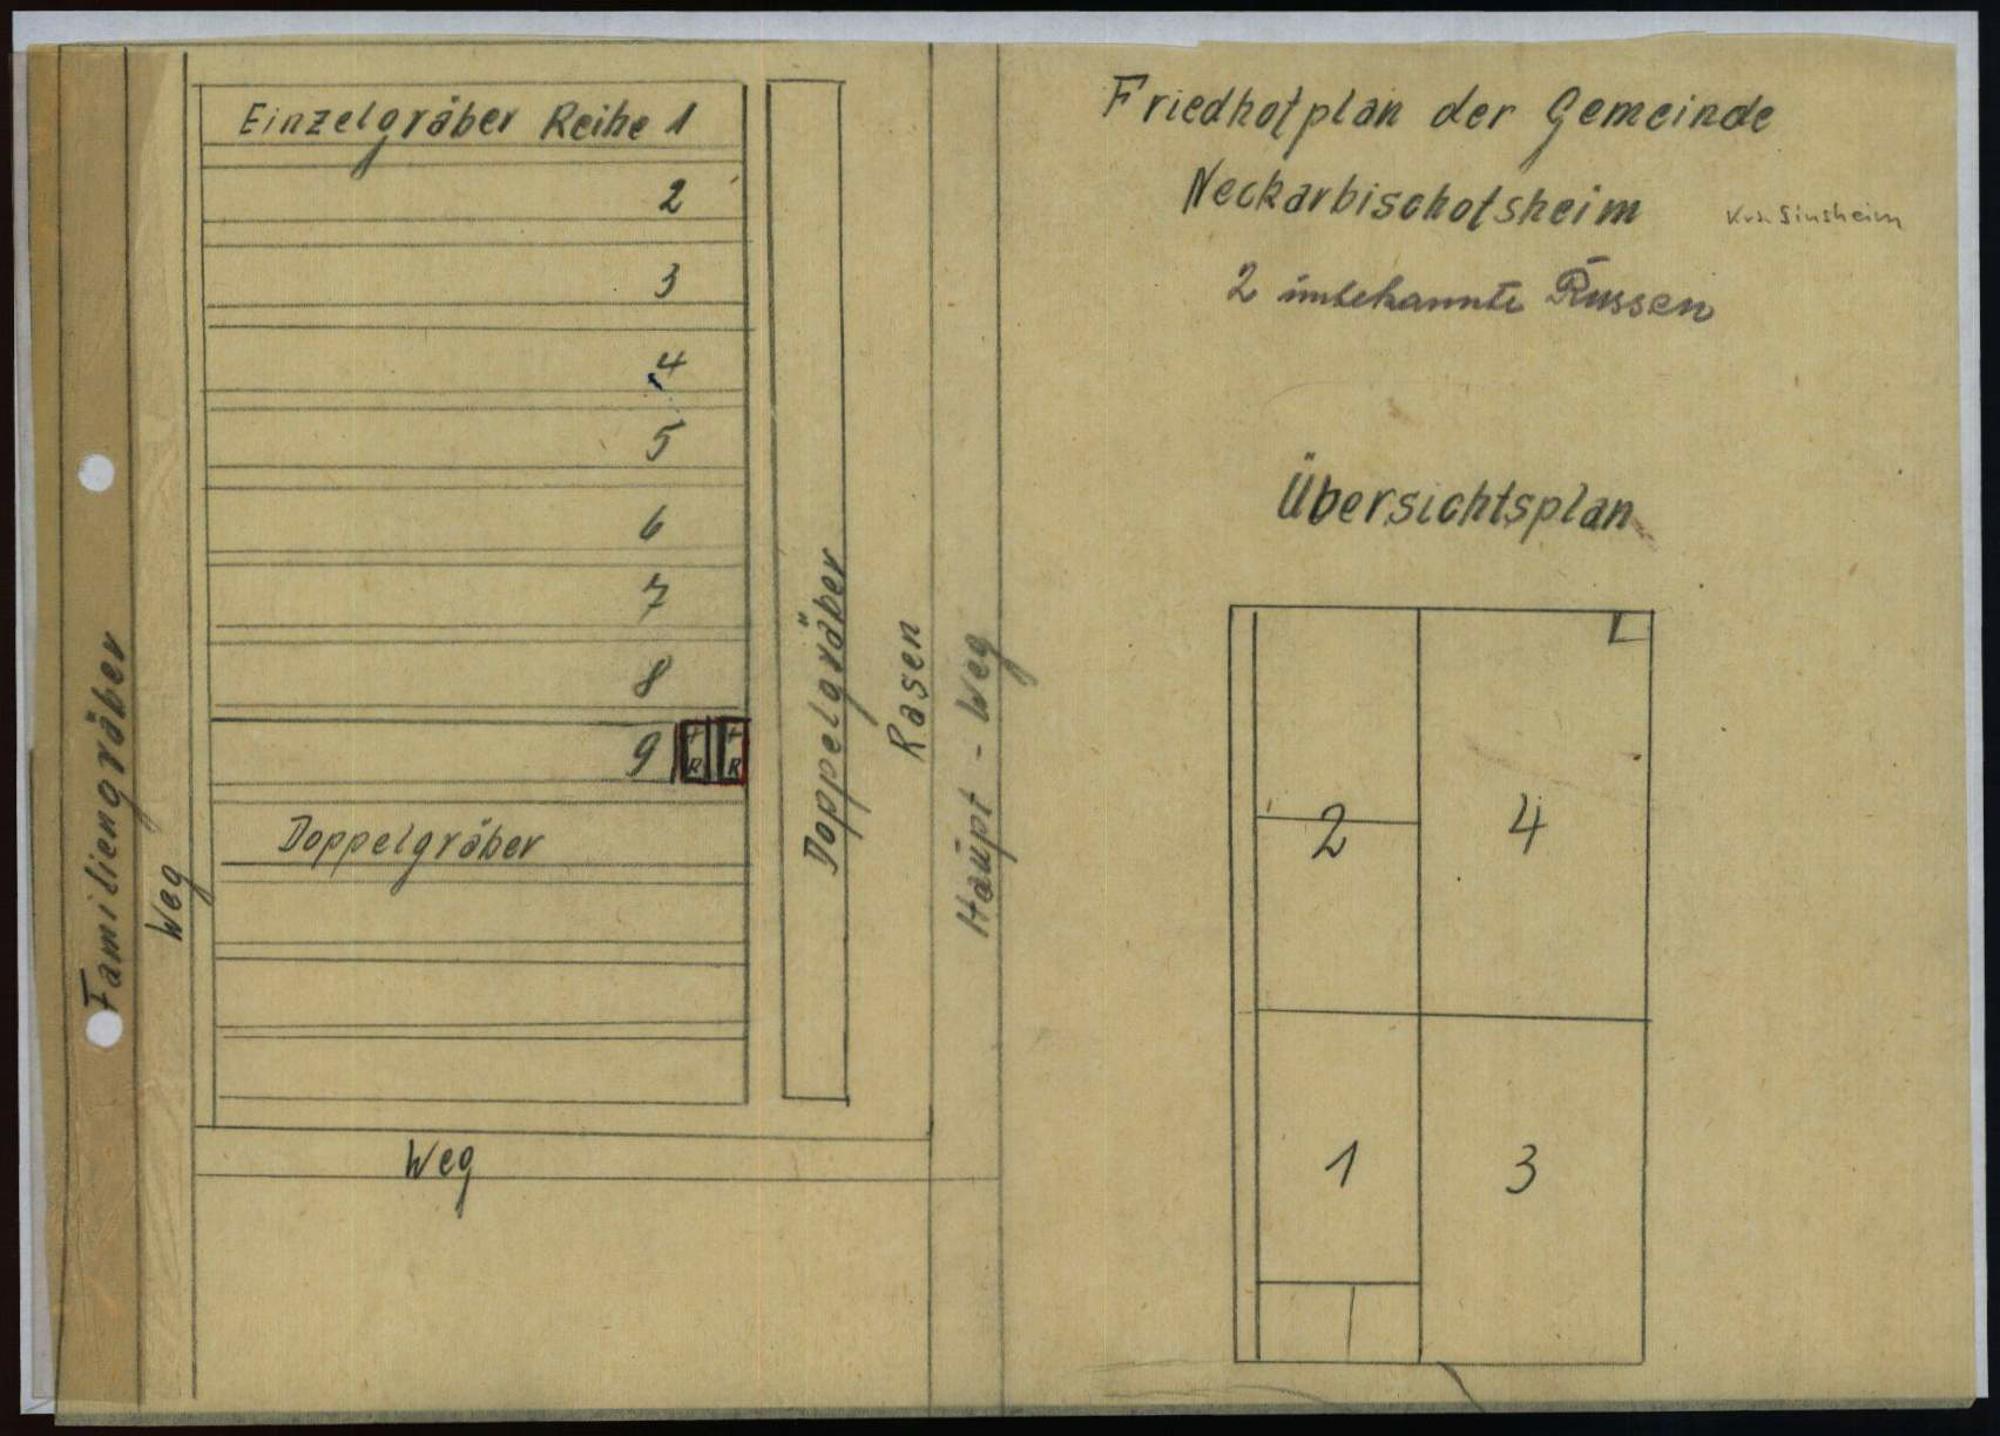 Einzelgräber Reihe 1
2
3
4
5
6
7
8
9 + R + R
Doppelgräber
Familiengräber
Weg
Doppelgräber
Rasen
Haupt - Weg
Weg
Friedhofplan der Gemeinde
Neckarbischofsheim
Krs. Sinsheim
2 unbekannte Russen
Übersichtsplan
2 4
1 3